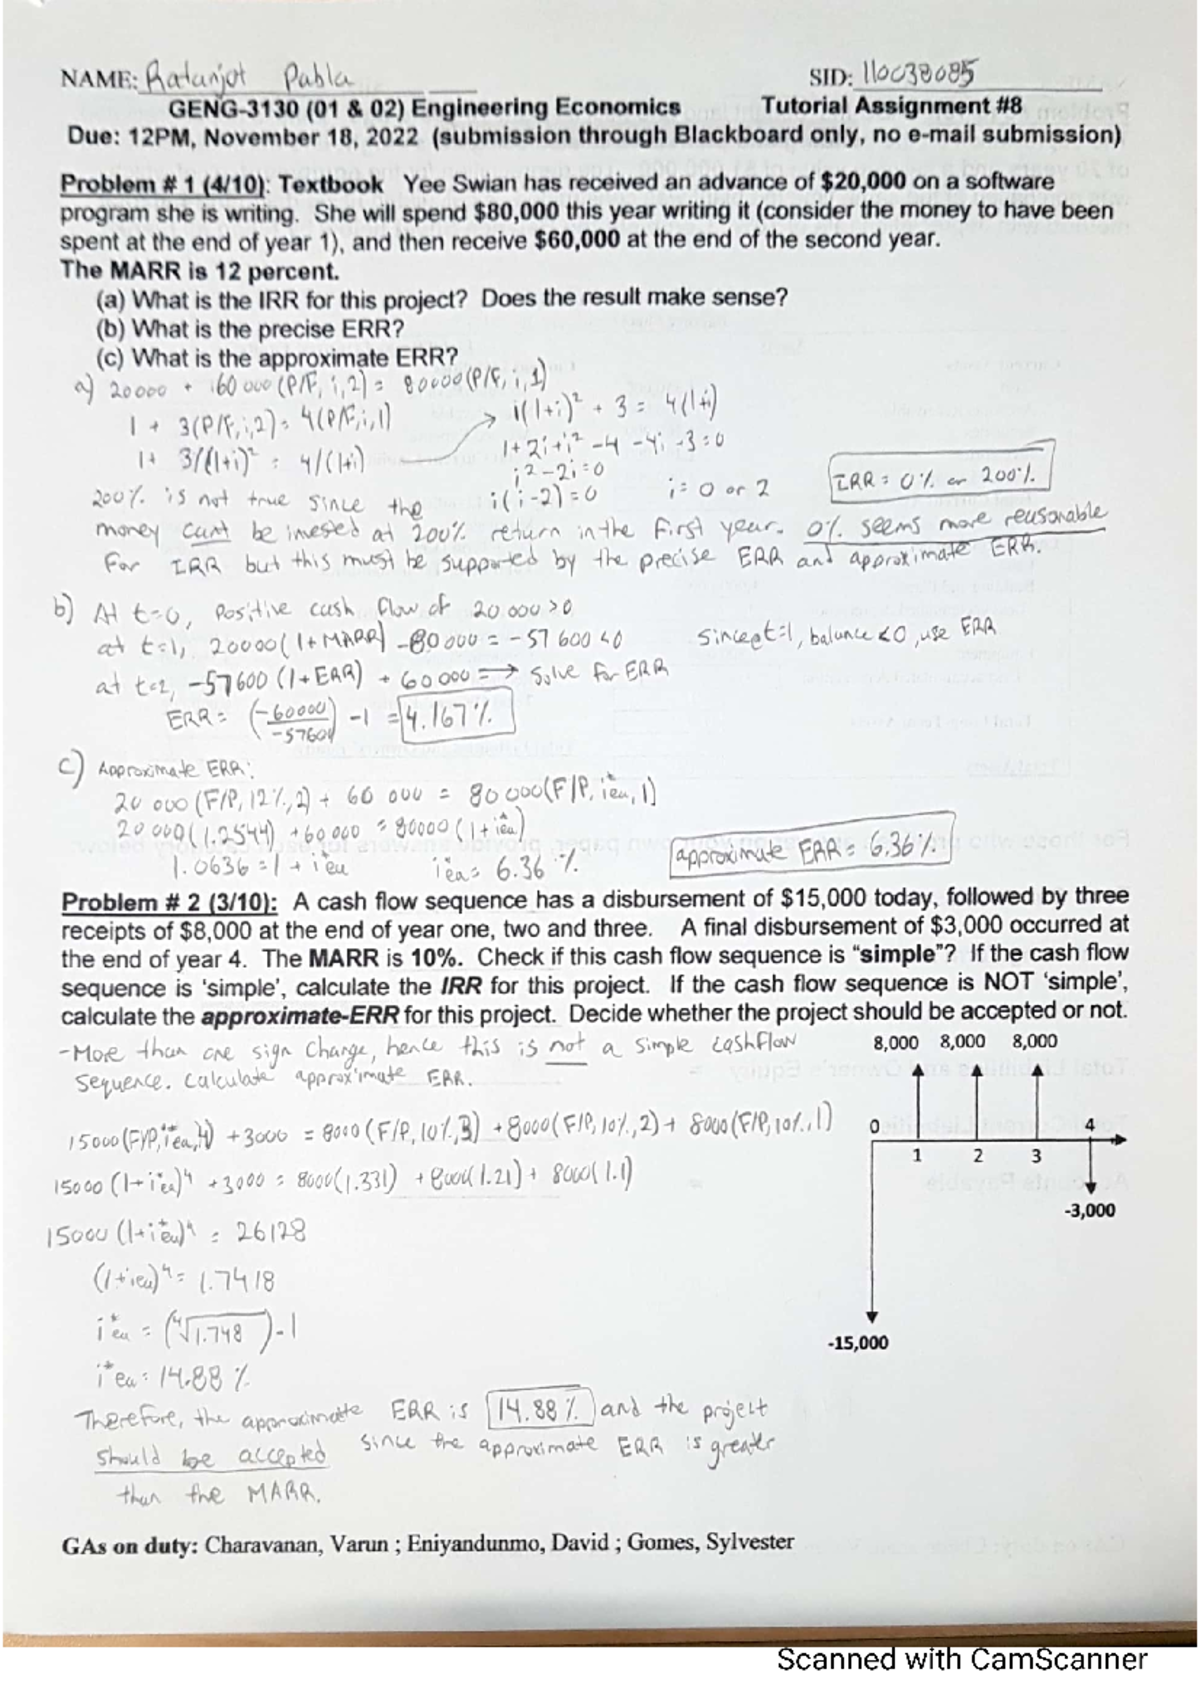 NAME: Ratanjot Pabla SID: 110038085
GENG-3130 (01 & 02) Engineering Economics Tutorial Assignment #8
Due: 12PM, November 18, 2022 (submission through Blackboard only, no e-mail submission)
Problem # 1 (4/10): Textbook Yee Swian has received an advance of $20,000 on a software
program she is writing. She will spend $80,000 this year writing it (consider the money to have been
spent at the end of year 1), and then receive $60,000 at the end of the second year.
The MARR is 12 percent.
(a) What is the IRR for this project? Does the result make sense?
(b) What is the precise ERR?
(c) What is the approximate ERR?
a) 20000 + 60 000 (P/F, i, 2) = 80000 (P/F, i, 1)
1 + 3(P/F, i, 2) = 4(P/F, i, 1)
1 + 3/(1+i)² = 4/(1+i)
1(1+i)² + 3 = 4(1+i)
1+2i+i² -4 -4i -3=0
i²-2i=0
i(i-2)=0 i= 0 or 2
IRR = 0% or 200%
200% is not true since the
money can't be invested at 200% return in the first year. 0% seems more reasonable
for IRR but this must be supported by the precise ERR and approximate ERR.
b) At t=0, positive cash flow of 20 000 >0
at t=1, 20000(1+MARR) -80000 = -57 600 <0 since t=1, balance <0, use ERR
at t=2, -57600 (1+ERR) + 60000 = → Solve for ERR
ERR = (-60000/-57600) -1 = 4.167%
c) Approximate ERR:
20 000 (F/P, 12%, 2) + 60 000 = 80 000(F/P, i*ea, 1)
20 000(1.2544) + 60 000 = 80000 (1+i*ea)
1.0636 = 1 + i*ea i*ea = 6.36 %
approximate ERR = 6.36%
Problem # 2 (3/10): A cash flow sequence has a disbursement of $15,000 today, followed by three
receipts of $8,000 at the end of year one, two and three. A final disbursement of $3,000 occurred at
the end of year 4. The MARR is 10%. Check if this cash flow sequence is “simple”? If the cash flow
sequence is ‘simple’, calculate the IRR for this project. If the cash flow sequence is NOT ‘simple’,
calculate the approximate-ERR for this project. Decide whether the project should be accepted or not.
-More than one sign change, hence this is not a simple cashflow
sequence. Calculate approximate ERR.
8,000 8,000 8,000
0 4
1 2 3
-3,000
-15,000
15000(F/P, i*ea, 4) + 3000 = 8000 (F/P, 10%, 3) + 8000(F/P, 10%, 2) + 8000(F/P, 10%, 1)
15000 (1+i*ea)⁴ + 3000 = 8000(1.331) + 8000(1.21) + 8000(1.1)
15000 (1+i*ea)⁴ = 26128
(1+i*ea)⁴ = 1.7418
i*ea = (⁴√1.748) -1
i*ea = 14.88 %
Therefore, the approximate ERR is 14.88% and the project
should be accepted since the approximate ERR is greater
than the MARR.
GAs on duty: Charavanan, Varun ; Eniyandunmo, David ; Gomes, Sylvester
Scanned with CamScanner